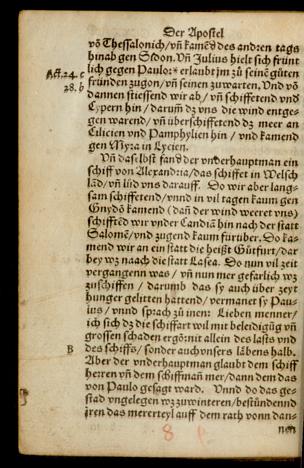 Der Apostel
võ Thessalonich/ vñ kamẽd des andren tags
hinab gen Sidon. Vñ Julius hielt sich fründt
lich gegen Paulo: * erlaubt im zů seinẽ gůten
Act. 24. c
fründen zugon/ vñ seinen zuwarten. Vnd võ
28. b
dannen stiessend wir ab/ vñ schifftend vnd
Cypern hin/ darum̃ dz vns die wind entge-
gen warend/ vñ überschifftend dz meer an
Cilicien vnd Pamphylien hin/ vnd kamend
gen Myra in Lycien.
Vñ daselbst fand der vnderhauptman ein
schiff von Alexandria/ das schiffet in Welsch
lãd/ vñ lůd vns darauff. Do wir aber lang-
sam schifftend/ vnnd in vil tagen kaum gen
Gnydõ kamend (dañ der wind weeret vns)
schifftẽd wir vnder Candiã hin nach der statt
Salomê/ vnd zugend kaum fürüber. Do ka-
mend wir an ein statt die heißt Gůtfurt/ dar
bey wz naach die statt Lasea. Do nun vil zeit
vergangenn was/ vñ nun mer gefarlich wz
zuschiffen / darumb das sy auch über zeyt
hunger gelitten hattend/ vermanet sy Pau-
lus / vnnd sprach zů inen: Lieben menner/
ich sich dz die schiffart wil mit beleidigũg vñ
grossen schaden ergõ: nit allein des lasts vnd
B
des schiffs/ sonder auch vnsers läbens halb.
Aber der vnderhauptman glaubt dem schiff
herren vñ dem schiffmañ mer/ dann dem das
von Paulo gesagt ward. Vnnd do das ge-
stad vngelegen wz zuwinteren/ bestündennd
jren das mererteyl auff dem rath vonn dan-
nen
8